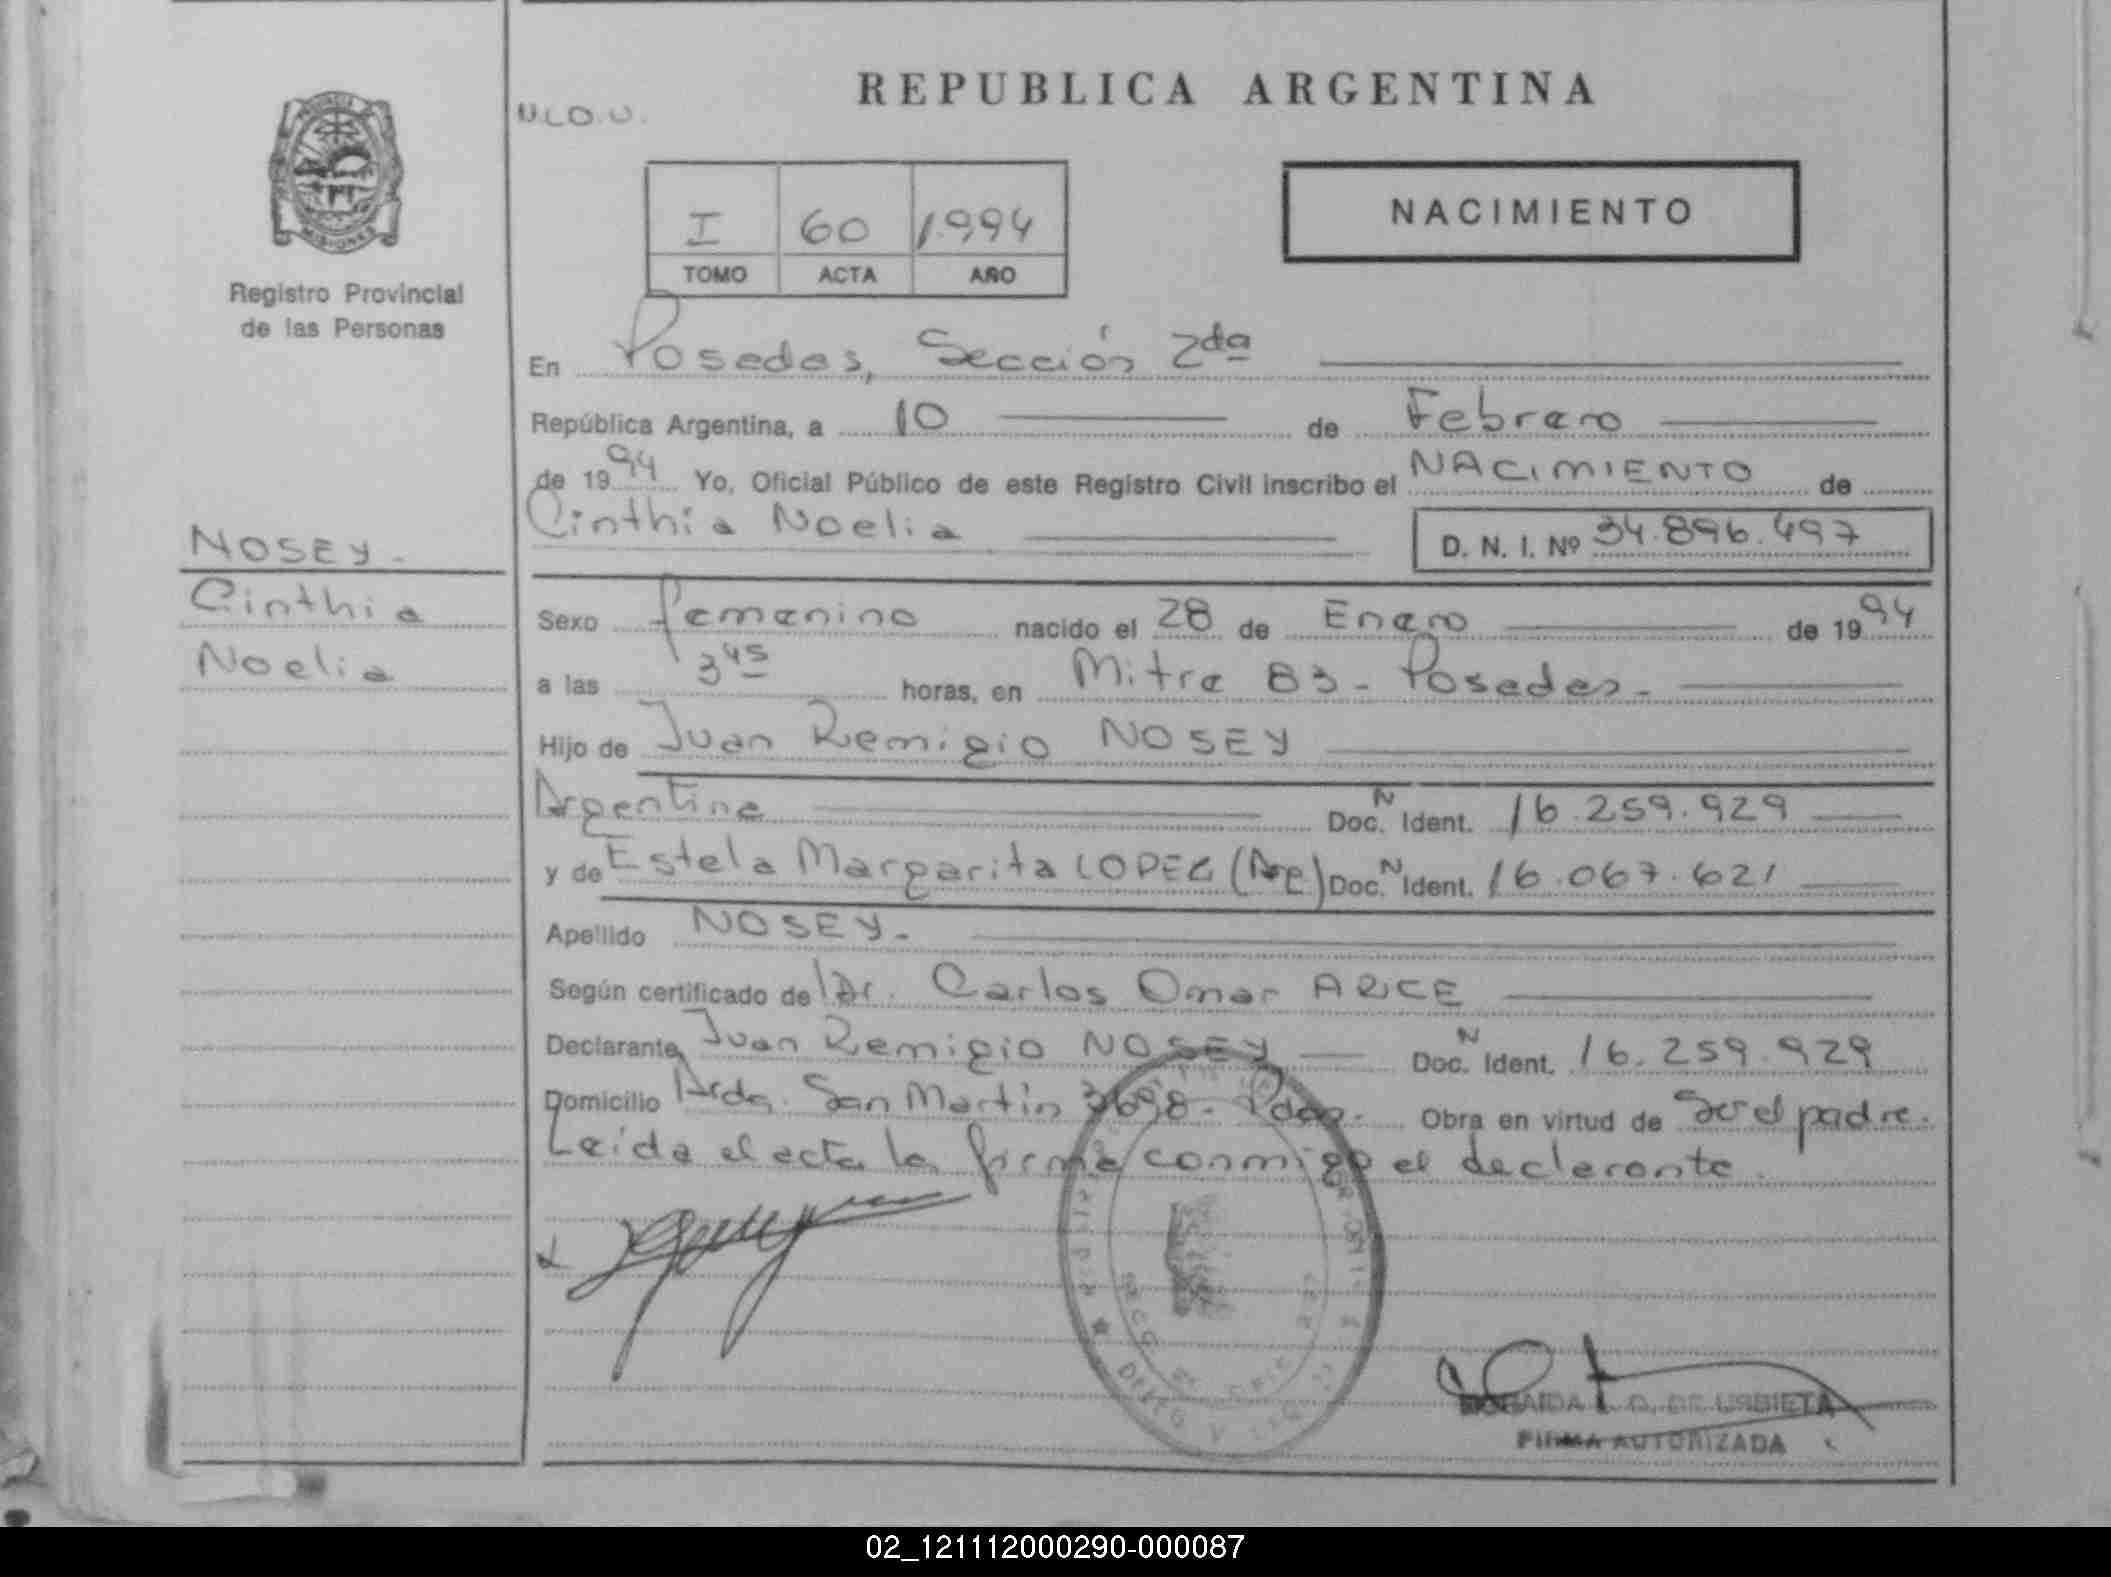 REPUBLICA ARGENTINA
N.LO.U.
PROVINCIA
MISIONES
Registro Provincial
de las Personas
I 60 1994
TOMO ACTA AÑO
NACIMIENTO
En Posadas, Sección 2da
República Argentina, a 10 de Febrero
de 1994 Yo, Oficial Público de este Registro Civil inscribo el NACIMIENTO de
Cinthia Noelia D. N. I. Nº 34.896.497
NOSEY.
Cinthia
Noelia
Sexo femenino nacido el 28 de Enero de 1994
a las 3 45 horas, en Mitre 83 - Posadas.
Hijo de Juan Remigio NOSEY
Argentina N Doc. Ident. 16.259.929
y de Estela Margarita LOPEZ (Arg) N Doc. Ident. 16.067.621
Apellido NOSEY.
Según certificado de Dr. Carlos Omar ARCE
Declarante Juan Remigio NOSEY N Doc. Ident. 16.259.929
Domicilio Avda. San Martín 3698 - Pdas. Obra en virtud de Ser el padre.
Leída el acta la firma conmigo el declarante.
DE URBIETA
FIRMA AUTORIZADA
02_121112000290-000087